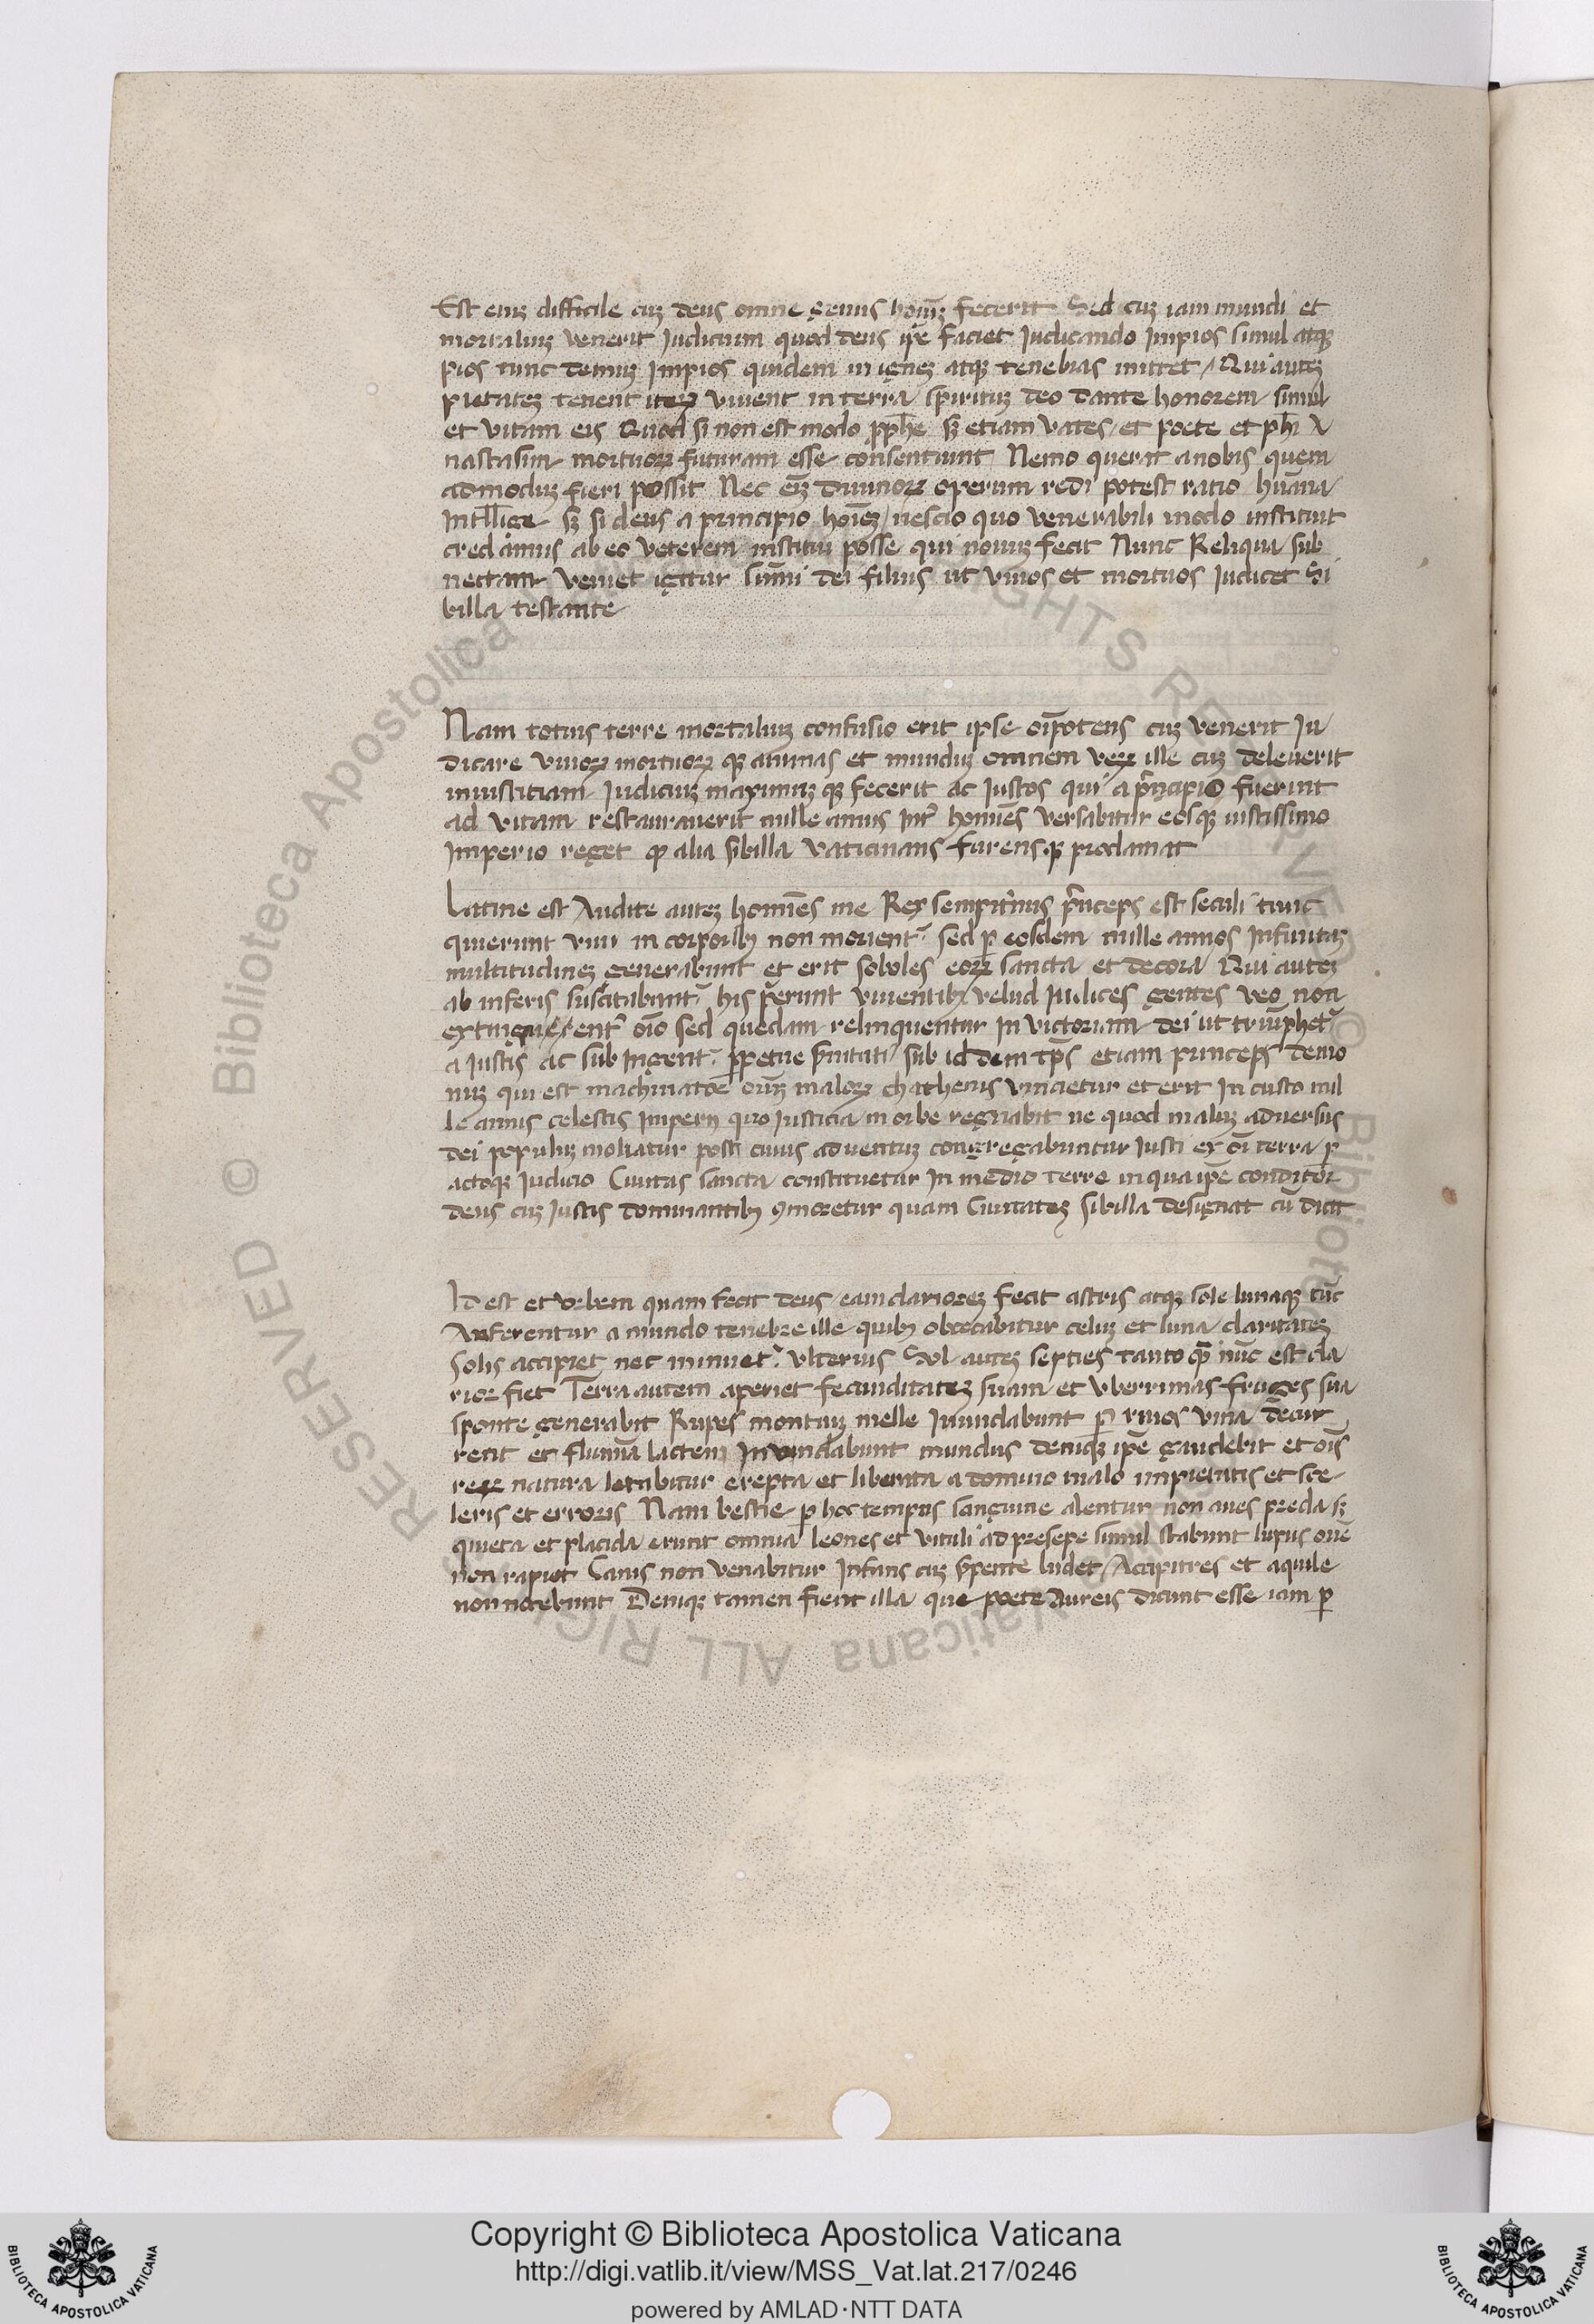 Est eniȝ difficile cuȝ deus omne genus hominȝ fecerit Sed cuȝ iam mundi et
mortaliuȝ venerit Judicium quod deus ip̄e faciet Judicando Impios simul atqꝫ
pios tunc demuȝ Impios quidem in igneȝ atqꝫ tenebras mittet / Qui auteȝ
pietateȝ tenent iteꝝ vivent in terra spirituȝ deo dante honorem simul
et vitam eis Quod si non est modo ꝓph̄e sȝ etiam vates / et poete et ph̄i A
nastasim mortuoꝝ futuram esse consentiunt Nemo querat a nobis quem
admoduȝ fieri possit Nec eīȝ divinoꝝ operum redi potest ratio hūana
Intll̄ige sȝ si deus a principio hoīeȝ / nescio quo venerabili modo instituit
credamus ab eo veterem institui posse qui novuȝ fecit Nunc Reliqua sub
nectam veniet igitur sūmi dei filius ut vivos et mortuos Judicet Si
billa testante
Nam totius terre mortaliuȝ confusio erit ipse oīpotens cuȝ venerit Ju
dicare vivoꝝ mortuoꝝ qꝫ animas et munduȝ omnem veꝝ ille cuȝ deleverit
iniustitiam Judiciuȝ maximuȝ qꝫ fecerit ac Justos qui a prīcipio fuerint
ad vitam restauraverit mille annis Int̄ hominēs versabitur eosqꝫ iustissimo
Imperio reget qꝫ alia sibilla vaticinans furensqꝫ proclamat
Latine est Audite auteȝ hominēs me Rex sempit̄nus prīceps est seculi tunc
qui erunt vivi in corporibꝫ non morient̄ sed ꝑ eosdem mille annos Infinitaȝ
multitudineȝ generabunt et erit soboles eoꝝ sancta et decora Qui auteȝ
ab inferis suscitabunt̄ his p̄erunt viventibꝫ velud Judices gentes vēo non
extinguerent̄ oīo sed quedam relinquentur in victoriam dei ut triūphet̄
a Justis ac subingent̄ ꝑpetue s̄vituti sub iddem tp̄s etiam princeps demo
nuȝ qui est machinator oīuȝ maloꝝ chathenis vincietur et erit In custo mil
le annis celestis Imperij quo Justicia in orbe regnabit ne quod maluȝ adversus
dei populuȝ moliatur post cuius adventuȝ congregabuntur Justi ex oī terra ꝑ
actoqꝫ Judicio Civitas sancta constituetur In medio terre in qua ip̄e conditor
deus cuȝ Justis dominantibꝫ ꝯmoretur quam Civitateȝ sibilla designat cū dicit
Id est et urbem quam fecit deus eam clarioreȝ fecit astris atqꝫ sole lunaqꝫ tūc
Auferentur a mundo tenebre ille quibꝫ obcecabitur celuȝ et luna claritateȝ
Solis accipiet nec minuet̄ ulterius Sol auteȝ septies tanto qꝫ̄ nūc est cla
rior fiet Terra autem aperiet fecunditateȝ suam et uberrimas fruges sua
sponte generabit Rupes montiuȝ melle Inundabunt ꝑ rivos vina decur
rent et flumīa lactem Inundabunt mundus deniqꝫ ip̄e gaudebit et oīs
reꝝ natura letabitur erepta et liberata a dominio mali impietatis et sce
leris et erroris Nam bestie ꝑ hoc tempus sanguine alentur non aves preda sȝ
quieta et placida erunt omnia leones et vituli ad presepe simul stabunt lupus ovē
non rapiet Canis non venabitur Infans cuȝ s̄pente ludet / Accipitres et aquile
non nocebunt Deniqꝫ tamen fient illa que poete Aureis dicunt esse iam ꝑ
Copyright © Biblioteca Apostolica Vaticana
http://digi.vatlib.it/view/MSS_Vat.lat.217/0246
powered by AMLAD·NTT DATA